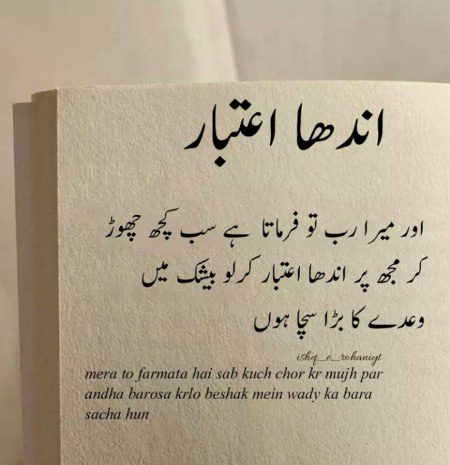 اندھا اعتبار
اور میرا رب تو فرماتا ہے سب کچھ چھوڑ
کر مجھ پر اندھا اعتبار کرلو بیشک میں
وعدے کا بڑا سچا ہوں
ishq_e_rohaniyt
mera to farmata hai sab kuch chor kr mujh par
andha barosa krlo beshak mein wady ka bara
sacha hun